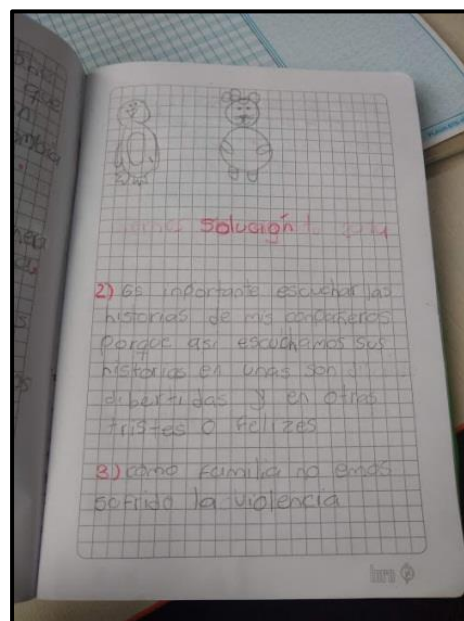 solución
2) Es inportante escuchar las
historias de mis conpañeros
porque asi escuchamos sus
historias en unas son
dibertidas y en otras
tristes o Felizes
3) como Familia no emos
sofrido la violencia